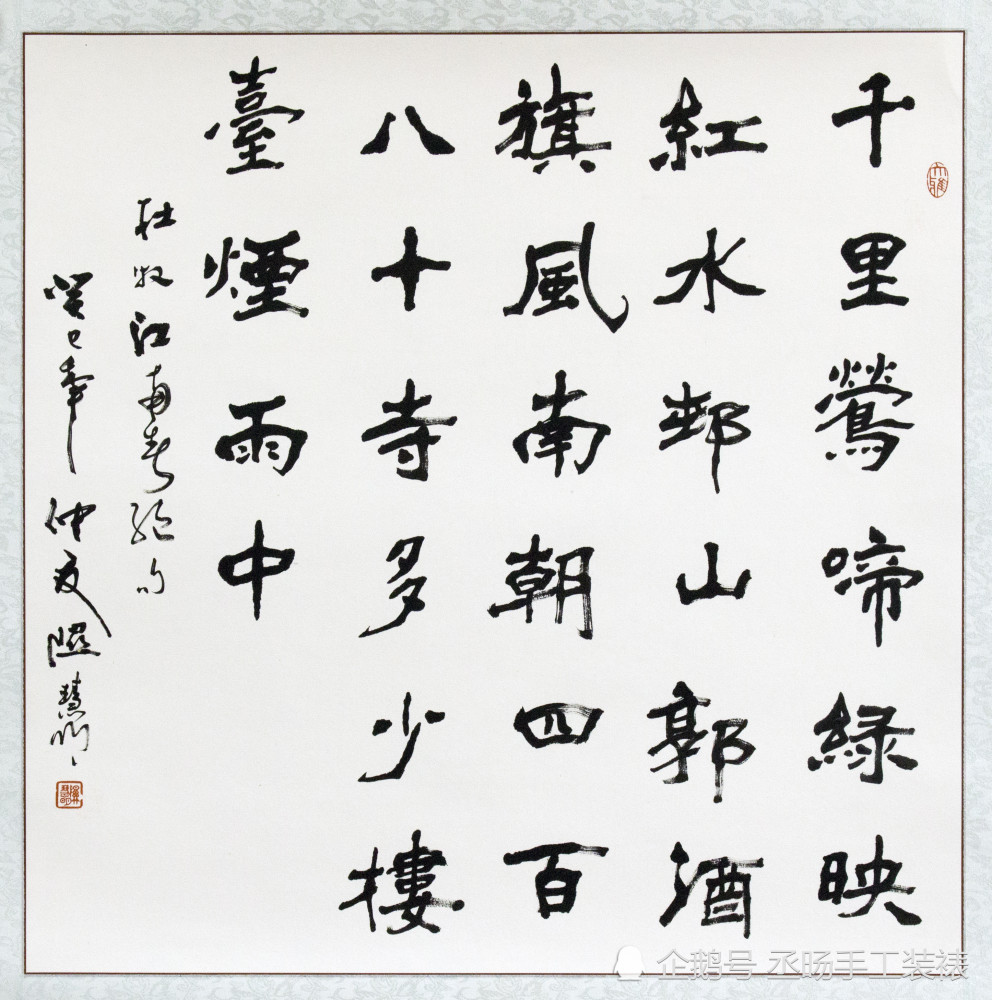 千里鶯啼緑映
紅水邨山郭酒
旗風南朝四百
八十寺多少樓
臺煙雨中
杜牧江南春絕句
癸巳年仲夏慧明
企鹅号 丞旸手工装裱